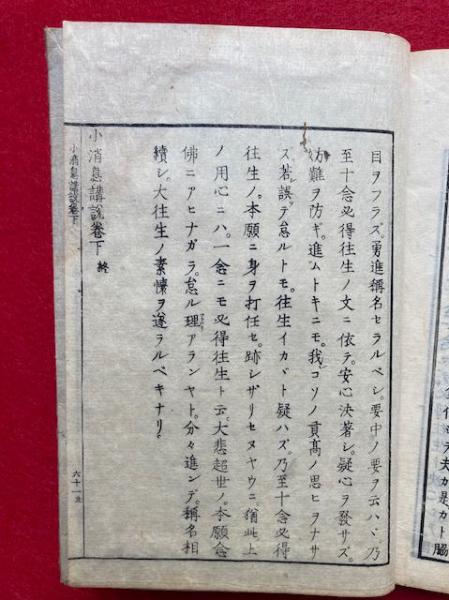 目ヲフラズ。勇進稱名セラルベシ。要中ノ要ヲ云ハヾ乃
至十念必得往生ノ文ニ依テ。安心決著シ。疑心ヲ發サズ。
妨難ヲ防ギ。進ムトキニモ。我コソノ貢高ノ思ヒヲナサ
ズ。若誤テ怠ルトモ。往生イカヾト疑ハズ。乃至十念必得
往生ノ。本願ニ身ヲ打任セ。跡シザリセヌヤウニ猶此上
ノ用心ニハ。一念ニモ必得往生ト云。大悲超世ノ。本願念
佛ニアヒナガラ。怠ル理アランヤト。分々進ンデ。稱名相
續シ。大往生ノ素懷ヲ遂ラルベキナリ。
小消息講説卷下 終
小消息講説卷下
六十一